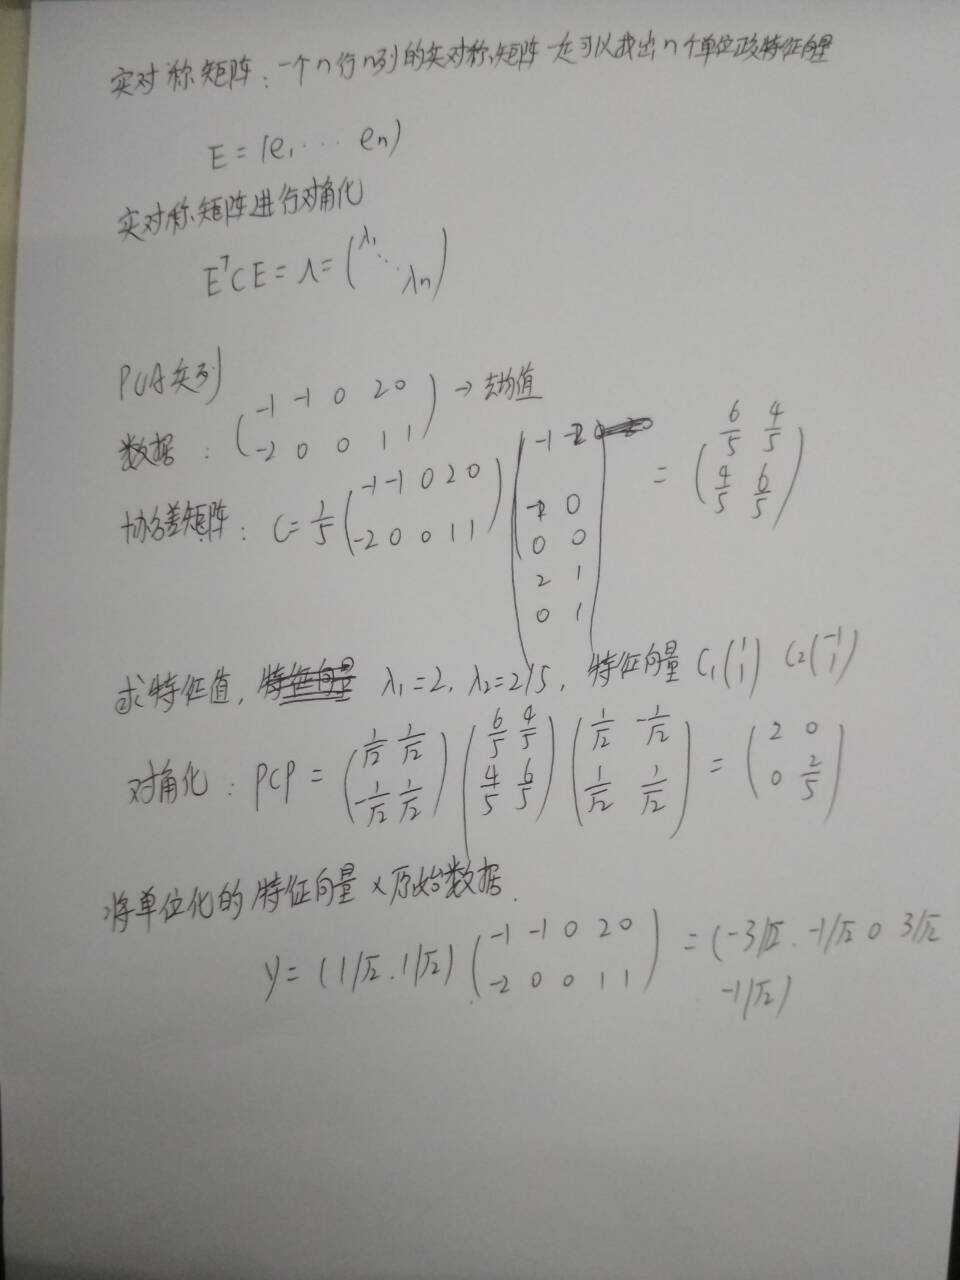 实对称矩阵：一个n行n列的实对称矩阵一定可以找出n个单位正交特征向量
E = (e₁ ··· eₙ)
实对称矩阵进行对角化
EᵀCE = Λ = (λ₁ ⋱ λn)
PCA实列
数据：(-1 -1 0 2 0
-2 0 0 1 1) → 去均值
协方差矩阵：C = 1/5 (-1 -1 0 2 0
-2 0 0 1 1) (-1 -2
-1 0
0 0
2 1
0 1) = (6/5 4/5
4/5 6/5)
求特征值, λ₁=2, λ₂=2/5, 特征向量 C₁(1 1) C₂(-1 1)
对角化：PCP = (1/√2 1/√2
-1/√2 1/√2) (6/5 4/5
4/5 6/5) (1/√2 -1/√2
1/√2 1/√2) = (2 0
0 2/5)
将单位化的特征向量×原始数据.
y = (1/√2 . 1/√2) (-1 -1 0 2 0
-2 0 0 1 1) = (-3/√2 . -1/√2 0 3/√2
-1/√2)